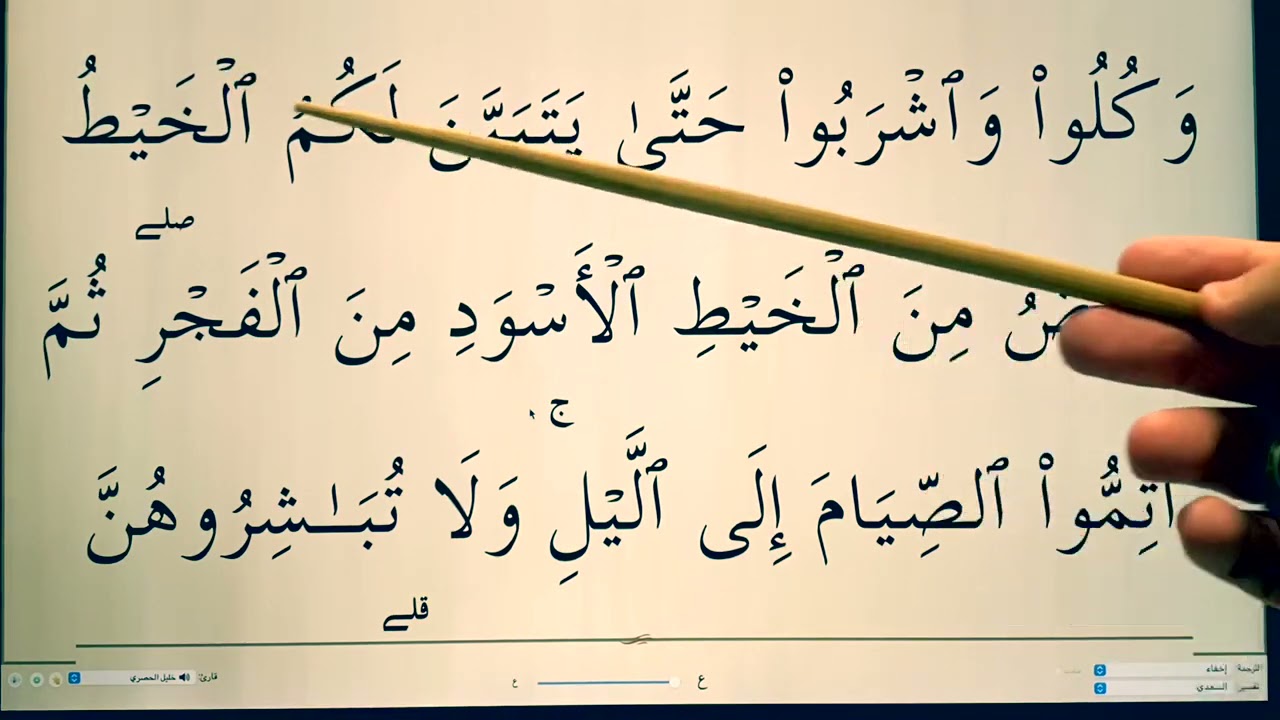 وَكُلُوا۟ وَٱشْرَبُوا۟ حَتَّىٰ يَتَبَيَّنَ لَكُمُ ٱلْخَيْطُ
مِنَ ٱلْخَيْطِ ٱلْأَسْوَدِ مِنَ ٱلْفَجْرِ ۖ ثُمَّ
أَتِمُّوا۟ ٱلصِّيَامَ إِلَى ٱلَّيْلِ ۚ وَلَا تُبَـٰشِرُوهُنَّ
قلے
الترجمة: إخفاء
تفسير: السعدي
ع
ع
قارئ: خليل الحصري